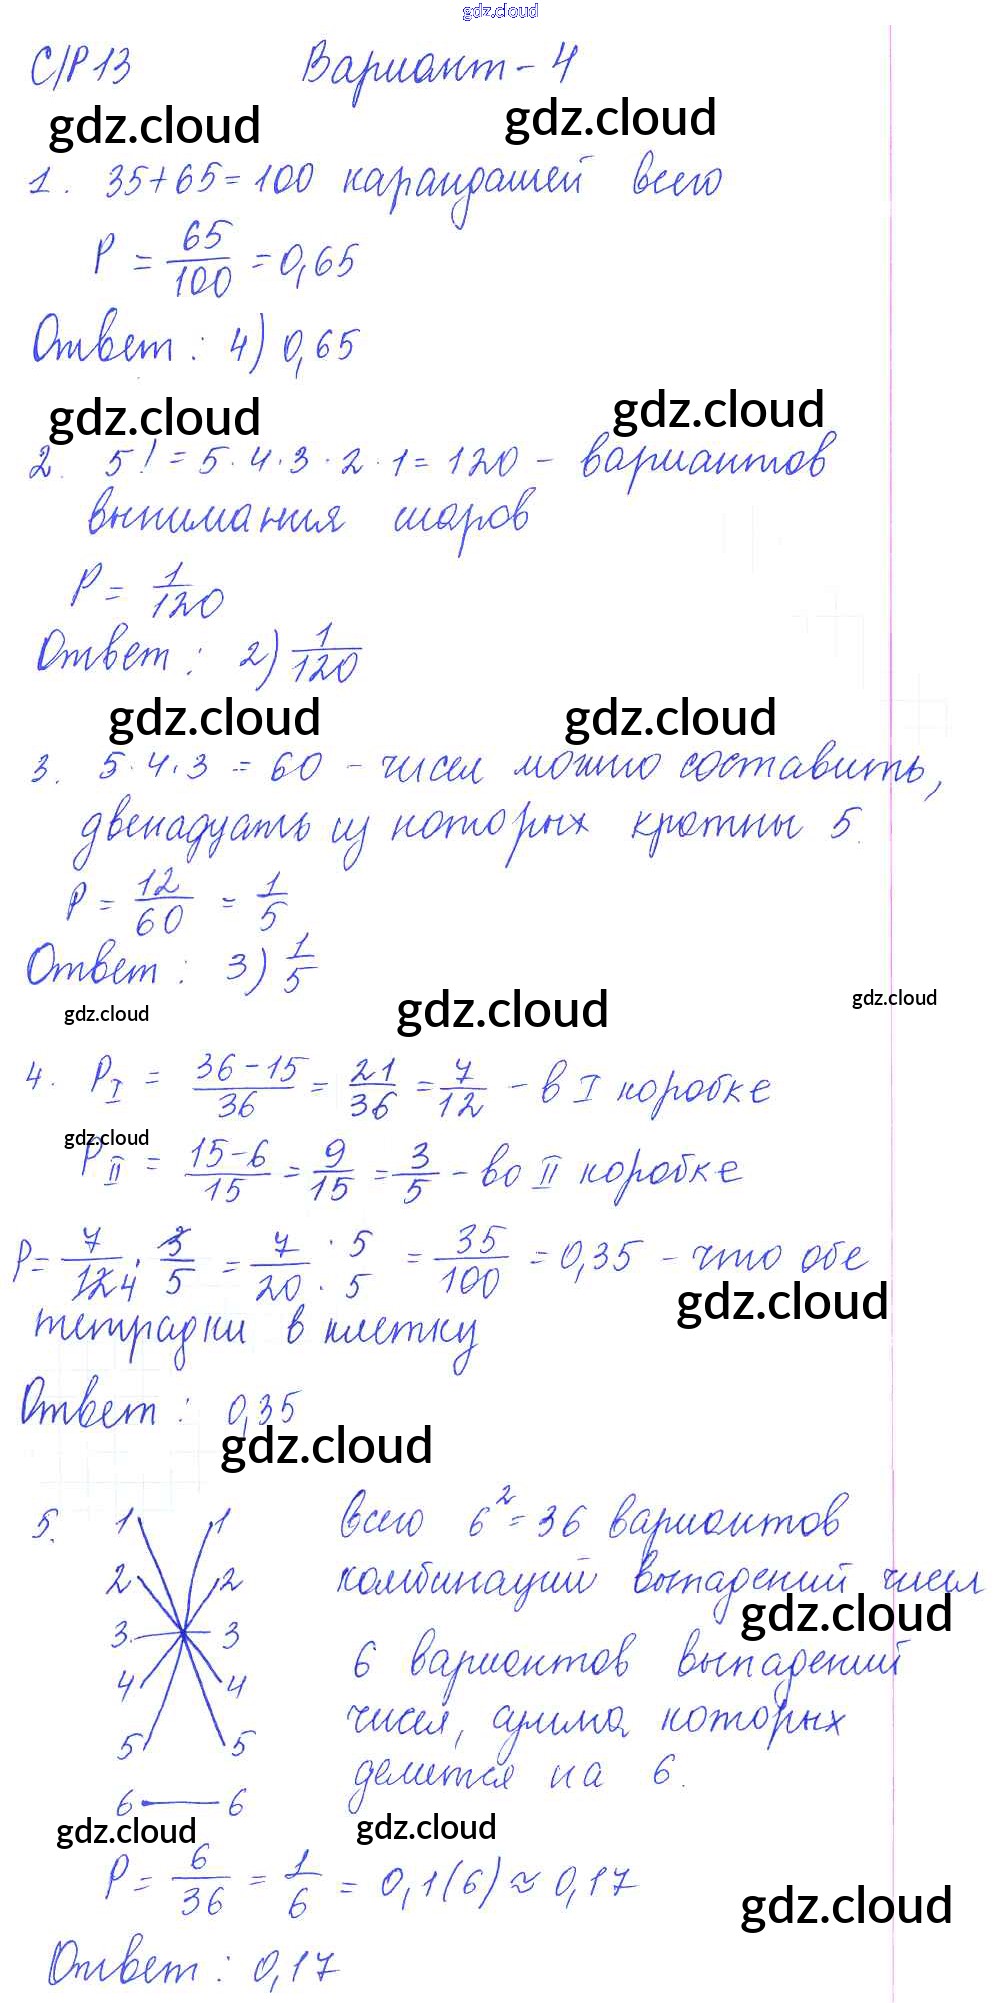 gdz.cloud
С/Р 13 Вариант-4
gdz.cloud gdz.cloud
1. 35+65=100 карандашей всего
P = 65/100 = 0,65
Ответ: 4) 0,65
gdz.cloud gdz.cloud
2. 5! = 5·4·3·2·1 = 120 - вариантов
вынимания шаров
P = 1/120
Ответ: 2) 1/120
gdz.cloud gdz.cloud
3. 5·4·3 = 60 - чисел можно составить,
двенадцать из которых кратны 5.
P = 12/60 = 1/5
Ответ: 3) 1/5
gdz.cloud gdz.cloud gdz.cloud
4. P I = 36-15/36 = 21/36 = 7/12 - в I коробке
gdz.cloud
P II = 15-6/15 = 9/15 = 3/5 - во II коробке
P = 7/12 4 · 3/5 = 7/20 · 5/· 5 = 35/100 = 0,35 - что обе
gdz.cloud
тетрадки в клетку
Ответ: 0,35
gdz.cloud
5. 1 1 Всего 6² = 36 вариантов
2 2 комбинаций выпадений чисел
gdz.cloud
3 3 6 вариантов выпадений
4 4 чисел, сумма которых
5 5 делится на 6.
6 6
gdz.cloud gdz.cloud
P = 6/36 = 1/6 = 0,1(6) ≈ 0,17
gdz.cloud
Ответ: 0,17